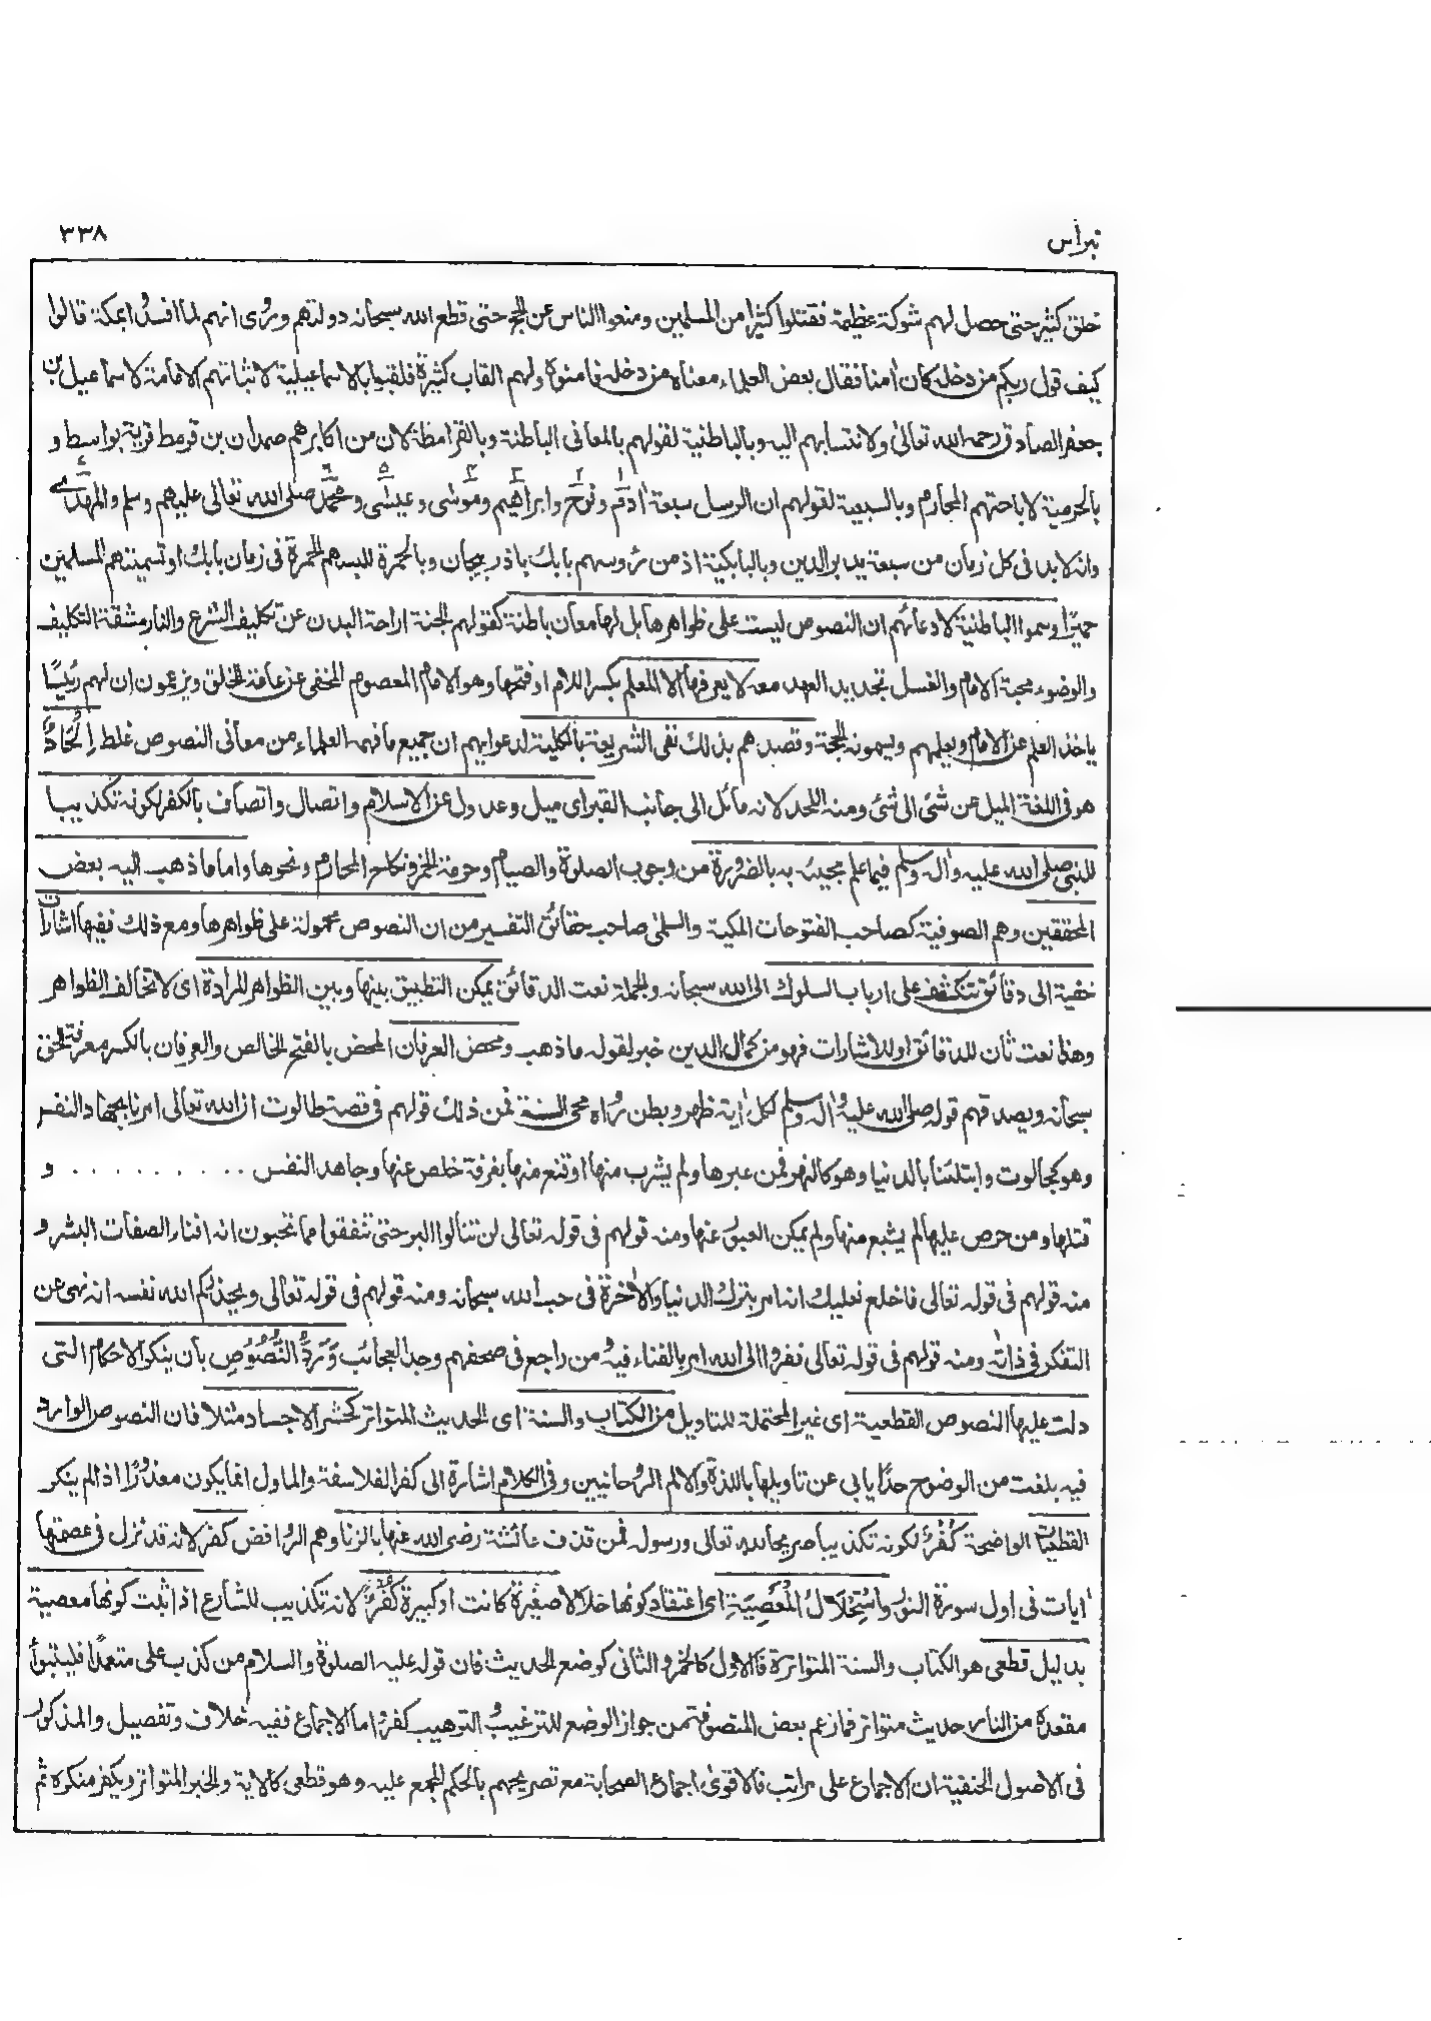 نبراس
٣٣٨
خلق كثير حتى حصل لهم شوكة عظيمة فقتلوا كثيرا من المسلمين ومنعوا الناس عن الحج حتى قطع الله سبحانه دولتهم وروى انهم لما افسدوا بمكة قالوا
كيف قول ربكم من دخله كان امنا فقال بعض العلماء معناه من دخله فامنوه ولهم القاب كثيرة فلقبوا بالاسماعيلية لاثباتهم الامامة لاسماعيل بن
جعفر الصادق رحمه الله تعالى ولانتسابهم اليه وبالباطنية لقولهم بالمعانى الباطنة وبالقرامطة لان من اكابرهم حمدان بن قرمط قرية بواسط و
بالحرمية لاباحتهم المحارم وبالسبعية لقولهم ان الرسل سبعة اٰدم ونوح وابراهيم وموسى وعيسى ومحمد صلى الله تعالى عليهم وسلم والمهدى
وانه لا بد فى كل زمان من سبعة يدبرالدين وبالبابكية اذ من رءوسهم بابك باذربيجان وبالحمرة للبسهم الحمرة فى زمان بابك او تسميتهم المسلمين
حميرا وسموا الباطنية لادعائهم ان النصوص ليست على ظواهرها بل لها معان باطنة كقولهم الجنة اراحة البدن عن تكليف الشرع والنار مشقة التكليف
والوضوء محبة الامام والغسل تجديد العهد معه لا يعرفها الا المعلم بكسر اللام او فتحها وهو الامام المعصوم المخفى عن عامة الخلق ويزعمون ان لهم رئيسًا
ياخذ العلم عن الامام ويعلمهم ويسمونه الحجة وقصدهم بذلك نفى الشريعة بالكلية لدعواهم ان جميع ما فهمه العلماء من معانى النصوص غلط اِلْحَادٌ
هو فى اللغة الميل عن شئ الى شئ ومنه اللحد لانه مائل الى جانب القبر اى ميل وعدول عن الاسلام واتصال واتصاف بالكفر لكونه تكذيبا
للنبى صلى الله عليه واله وسلم فيما علم مجيئه به بالضرورة من وجوب الصلوة والصيام وحرمة الخمر ونكاح المحارم ونحوها واما ما ذهب اليه بعض
المحققين وهم الصوفية كصاحب الفتوحات المكية والسلمى صاحب حقائق التفسير من ان النصوص محمولة على ظواهرها ومع ذلك ففيها اشارات
خفية الى دقائق تنكشف على ارباب السلوك الى الله سبحانه والجملة نعت الدقائق يمكن التطبيق بينها وبين الظواهر المرادة اى لا تخالف الظواهر
وهذا نعت ثان للدقائق او للاشارات فهو من كمال الدين خبر لقوله ما ذهب ومحض العرفان المحض بالفتح الخالص والعرفان بالكسر معرفة الحق
سبحانه ويصدقهم قوله صلى الله عليه واله وسلم لكل اٰية ظهر وبطن رواه محى السنة فمن ذلك قولهم فى قصة طالوت ان الله تعالى امرنا بجهاد النفس
وهو كجالوت وابتلئنا بالدنيا وهو كالنهر فمن عبرها ولم يشرب منها او تنع منها بغرفة خلص عنها وجاهد النفس . . . . . . . . . . و
قتلها ومن حرص عليها لم يشبع منها ولم يمكن العبور عنها ومنه قولهم فى قوله تعالى لن تنالوا البر حتى تنفقوا مما تحبون انه افناء الصفات البشر و
منه قولهم فى قوله تعالى فاخلع نعليك انه امر بترك الدنيا والاٰخرة فى حب الله سبحانه ومنه قولهم فى قوله تعالى ويحذركم الله نفسه انه نهى عن
التفكر فى ذاته ومنه قولهم فى قوله تعالى ففروا الى الله امر بالفناء فيه ومن راجع فى صحفهم وجد العجائب وَرَدُّ النُّصُوصِ بان ينكر الاحكام التى
دلت عليها النصوص القطعية اى غير المحتملة للتاويل من الكتاب والسنة اى الحديث المتواتر كحشر الاجساد مثلا فان النصوص الوارد
فيه بلغت من الوضوح حدا يابى عن تاويلها باللذة والالم الروحانيين وفى الكلام اشارة الى كفر الفلاسفة والماول انما يكون معذورا اذا لم ينكر
القطعيات الواضحة كُفْرٌ لكونه تكذيبا صريحا لله تعالى ورسوله فمن قذف عائشة رضى الله عنها بالزنا وهم الروافض كفر لانه قد نزل فى عصمتها
اٰيات فى اول سورة النور وَاسْتِحْلَالُ الْمَعْصِيَةِ اى اعتقاد كونها حلالا صغيرة كانت او كبيرة كُفْرٌ لانه تكذيب للشارع اذا ثبت كونها معصية
بدليل قطعى هو الكتاب والسنة المتواترة فالاول كالخمر والثانى كوضع الحديث فان قوله عليه الصلوة والسلام من كذب على متعمدا فليتبوأ
مقعده من النار حديث متواتر فما زعم بعض المتصوفة من جواز الوضع للترغيب والترهيب كفر واما الاجماع ففيه خلاف وتفصيل والمذكور
فى الاصول الحنفية ان الاجماع على مراتب فالاقوى اجماع الصحابة مع تصريحهم بالحكم المجمع عليه وهو قطعى كالاية والخبر المتواتر ويكفر منكره ثم